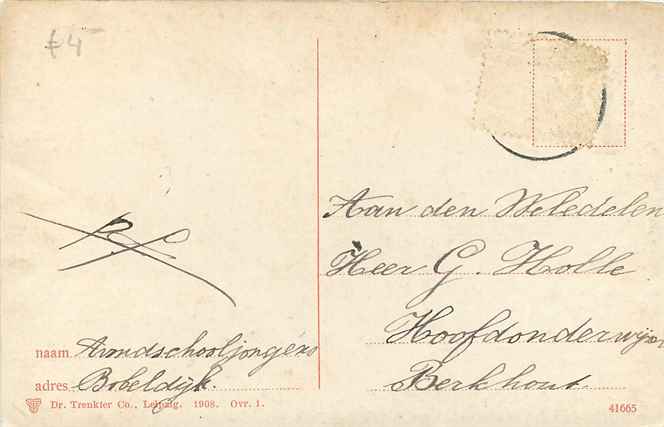 £4
P.f.
naam Avondschooljongens
adres Bobeldijk.
Dr. Trenkler Co., Leipzig. 1908. Ovr. 1.
Aan den Weledelen
Heer G. Holle
Hoofdonderwijzer
Berkhout.
41665